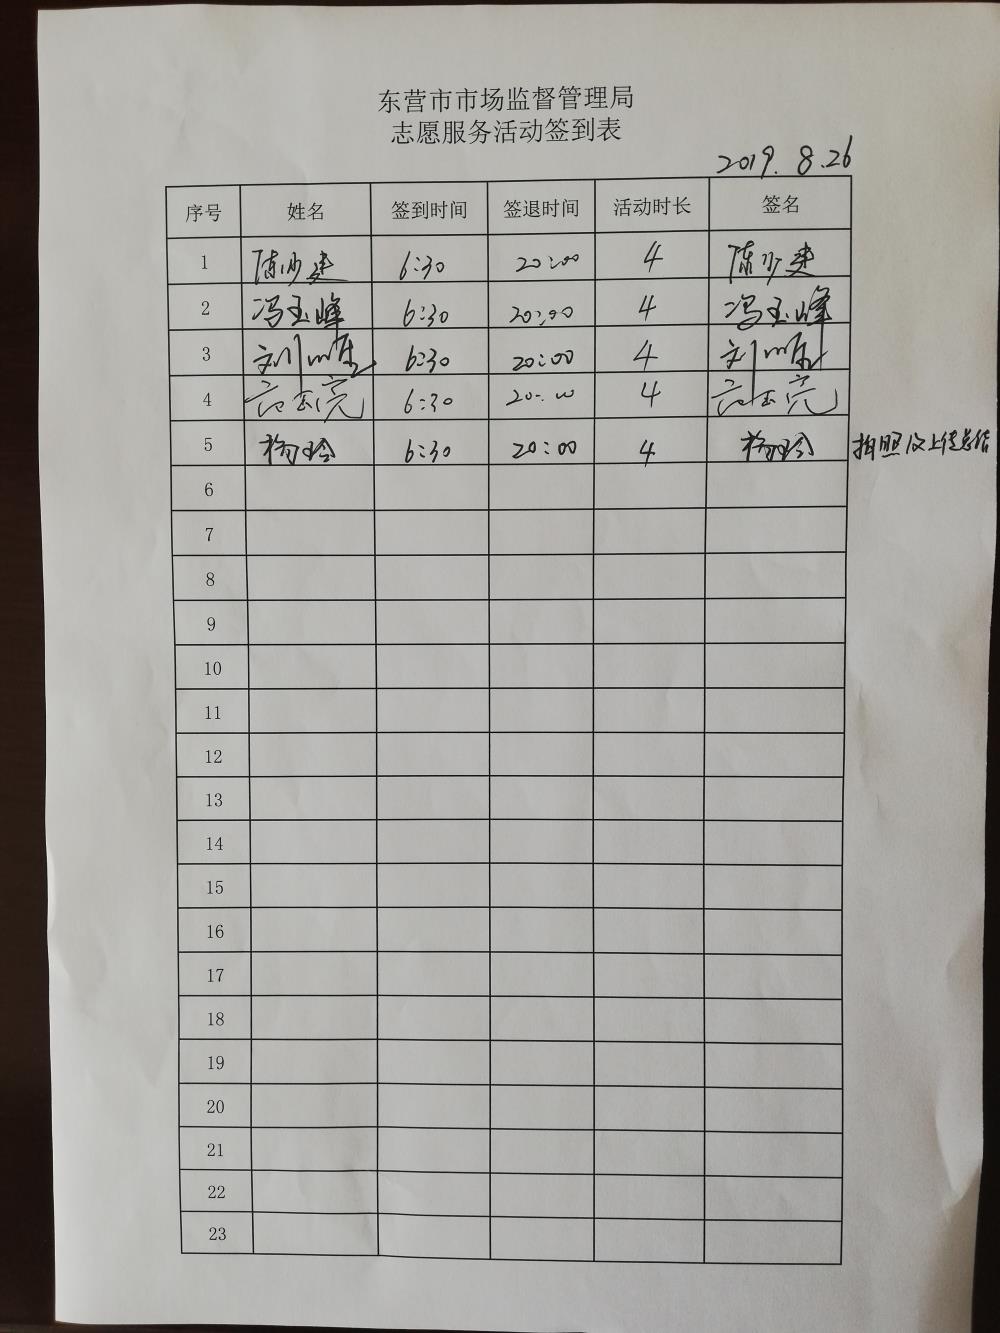 东营市市场监督管理局
志愿服务活动签到表
2019.8.26
序号 姓名 签到时间 签退时间 活动时长 签名
1 陈少建 6:30 20:00 4 陈少建
2 冯玉峰 6:30 20:00 4 冯玉峰
3 6:30 20:00 4
4 6:30 20:00 4
5 杨玲 6:30 20:00 4 杨玲 拍照及上传总结
6
7
8
9
10
11
12
13
14
15
16
17
18
19
20
21
22
23